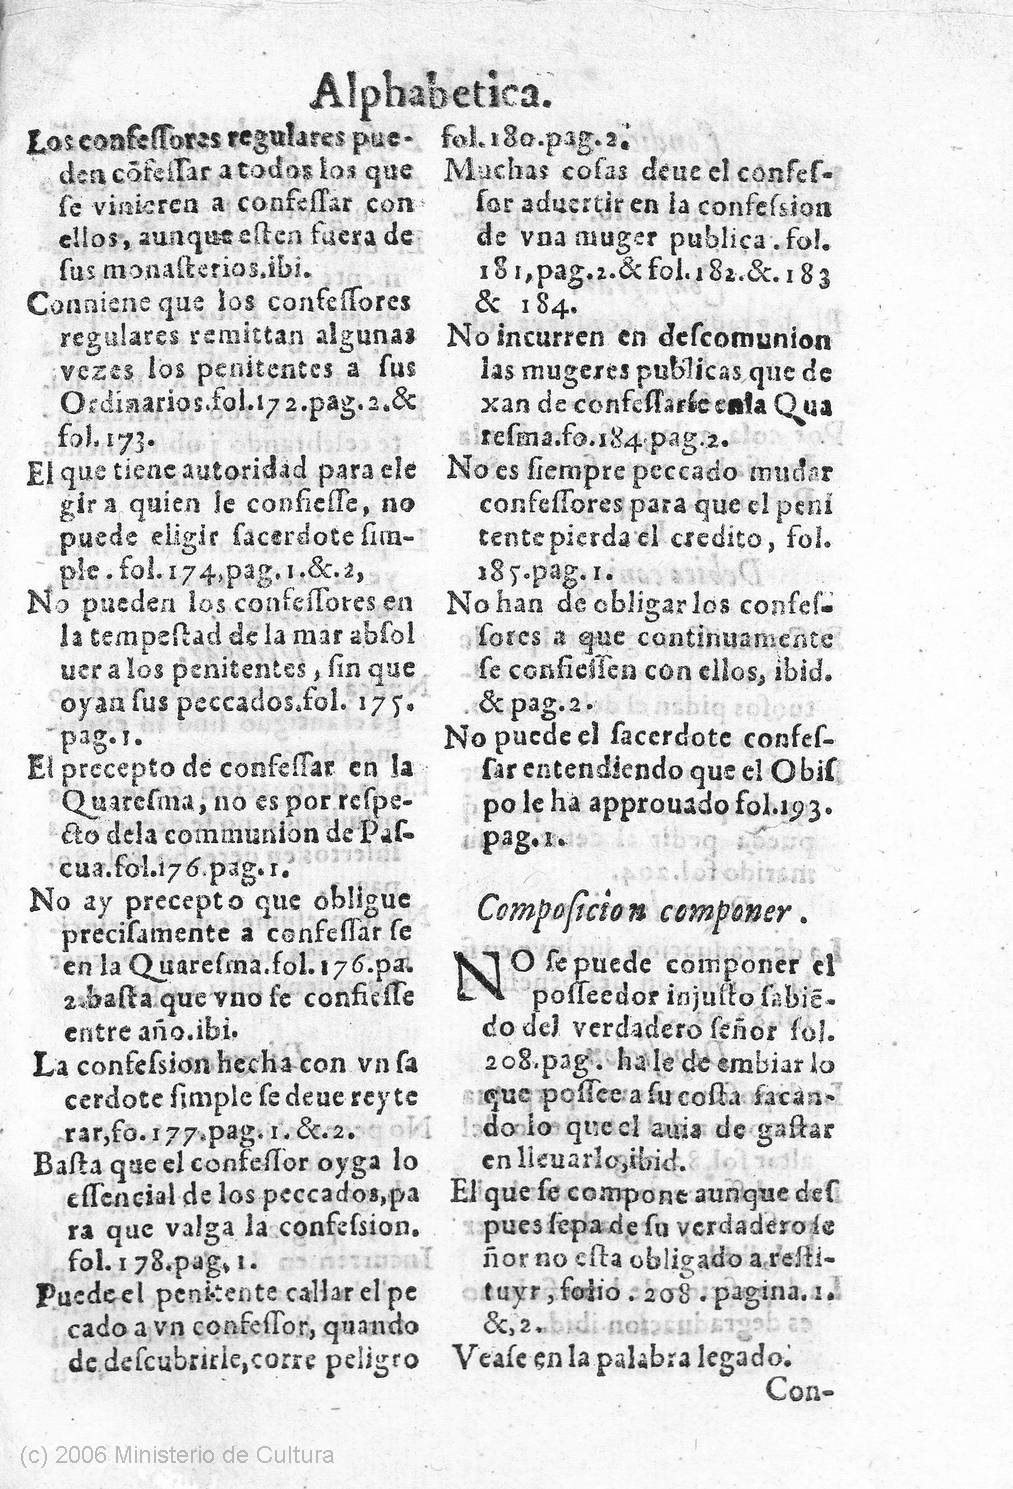 Alphabetica.
Los confeſſores regulares pue-
den cõfeſſar a todos los que
ſe vinieren a confeſſar con
ellos, aunque eſten fuera de
ſus monaſterios.ibi.
Conniene que los confeſſores
regulares remittan algunas
vezes los penitentes a ſus
Ordinarios.fol.172.pag.2.&
fol.173.
El que tiene autoridad para ele
gir a quien le confieſſe, no
puede eligir ſacerdote ſim-
ple. fol.174.pag.1.&.2,
No pueden los confeſſores en
la tempeſtad de la mar abſol
uer a los penitentes, ſin que
oyan ſus peccados.fol. 175.
pag.1.
El precepto de confeſſar en la
Quareſma, no es por reſpe-
cto dela communion de Paſ-
cua.fol.176.pag.1.
No ay precepto que obligue
preciſamente a confeſſar ſe
en la Quareſma.fol.176.pa.
2.baſta que vno ſe confieſſe
entre año.ibi.
La confeſsion hecha con vn ſa
cerdote ſimple ſe deue reyte
rar,fo.177.pag.1.&.2.
Baſta que el confeſſor oyga lo
eſſencial de los peccados,pa
ra que valga la confeſsion.
fol.178.pag,1.
Puede el penitente callar el pe
cado a vn confeſſor, quando
de deſcubrirle,corre peligro
fol.180.pag.2.
Muchas coſas deue el confeſ-
ſor aduertir en la confeſsion
de vna muger publica.fol.
181,pag.2.& fol.182.&.183
& 184.
No incurren en deſcomunion
las mugeres publicas que de
xan de confeſſarſe enla Qua
reſma.fo.184.pag.2.
No es ſiempre peccado mudar
confeſſores para que el peni
tente pierda el credito, fol.
185.pag.1.
No han de obligar los confeſ-
ſores a que continuamente
ſe confieſſen con ellos, ibid.
& pag.2.
No puede el ſacerdote confeſ-
ſar entendiendo que el Obiſ
po le ha approuado fol.193.
pag.1.
Compoſicion componer.
NO ſe puede componer el
poſſeedor injuſto ſabiẽ-
do del verdadero ſeñor fol.
208.pag. ha le de embiar lo
que poſſee a ſu coſta ſacan-
do lo que el auia de gaſtar
en lleuarlo,ibid.
El que ſe compone aunque deſ
pues ſepa de ſu verdadero ſe
ñor no eſta obligado a reſti-
tuyr, folio. 208. pagina.1.
&,2.
Veaſe en la palabra legado.
Con-
(c) 2006 Ministerio de Cultura